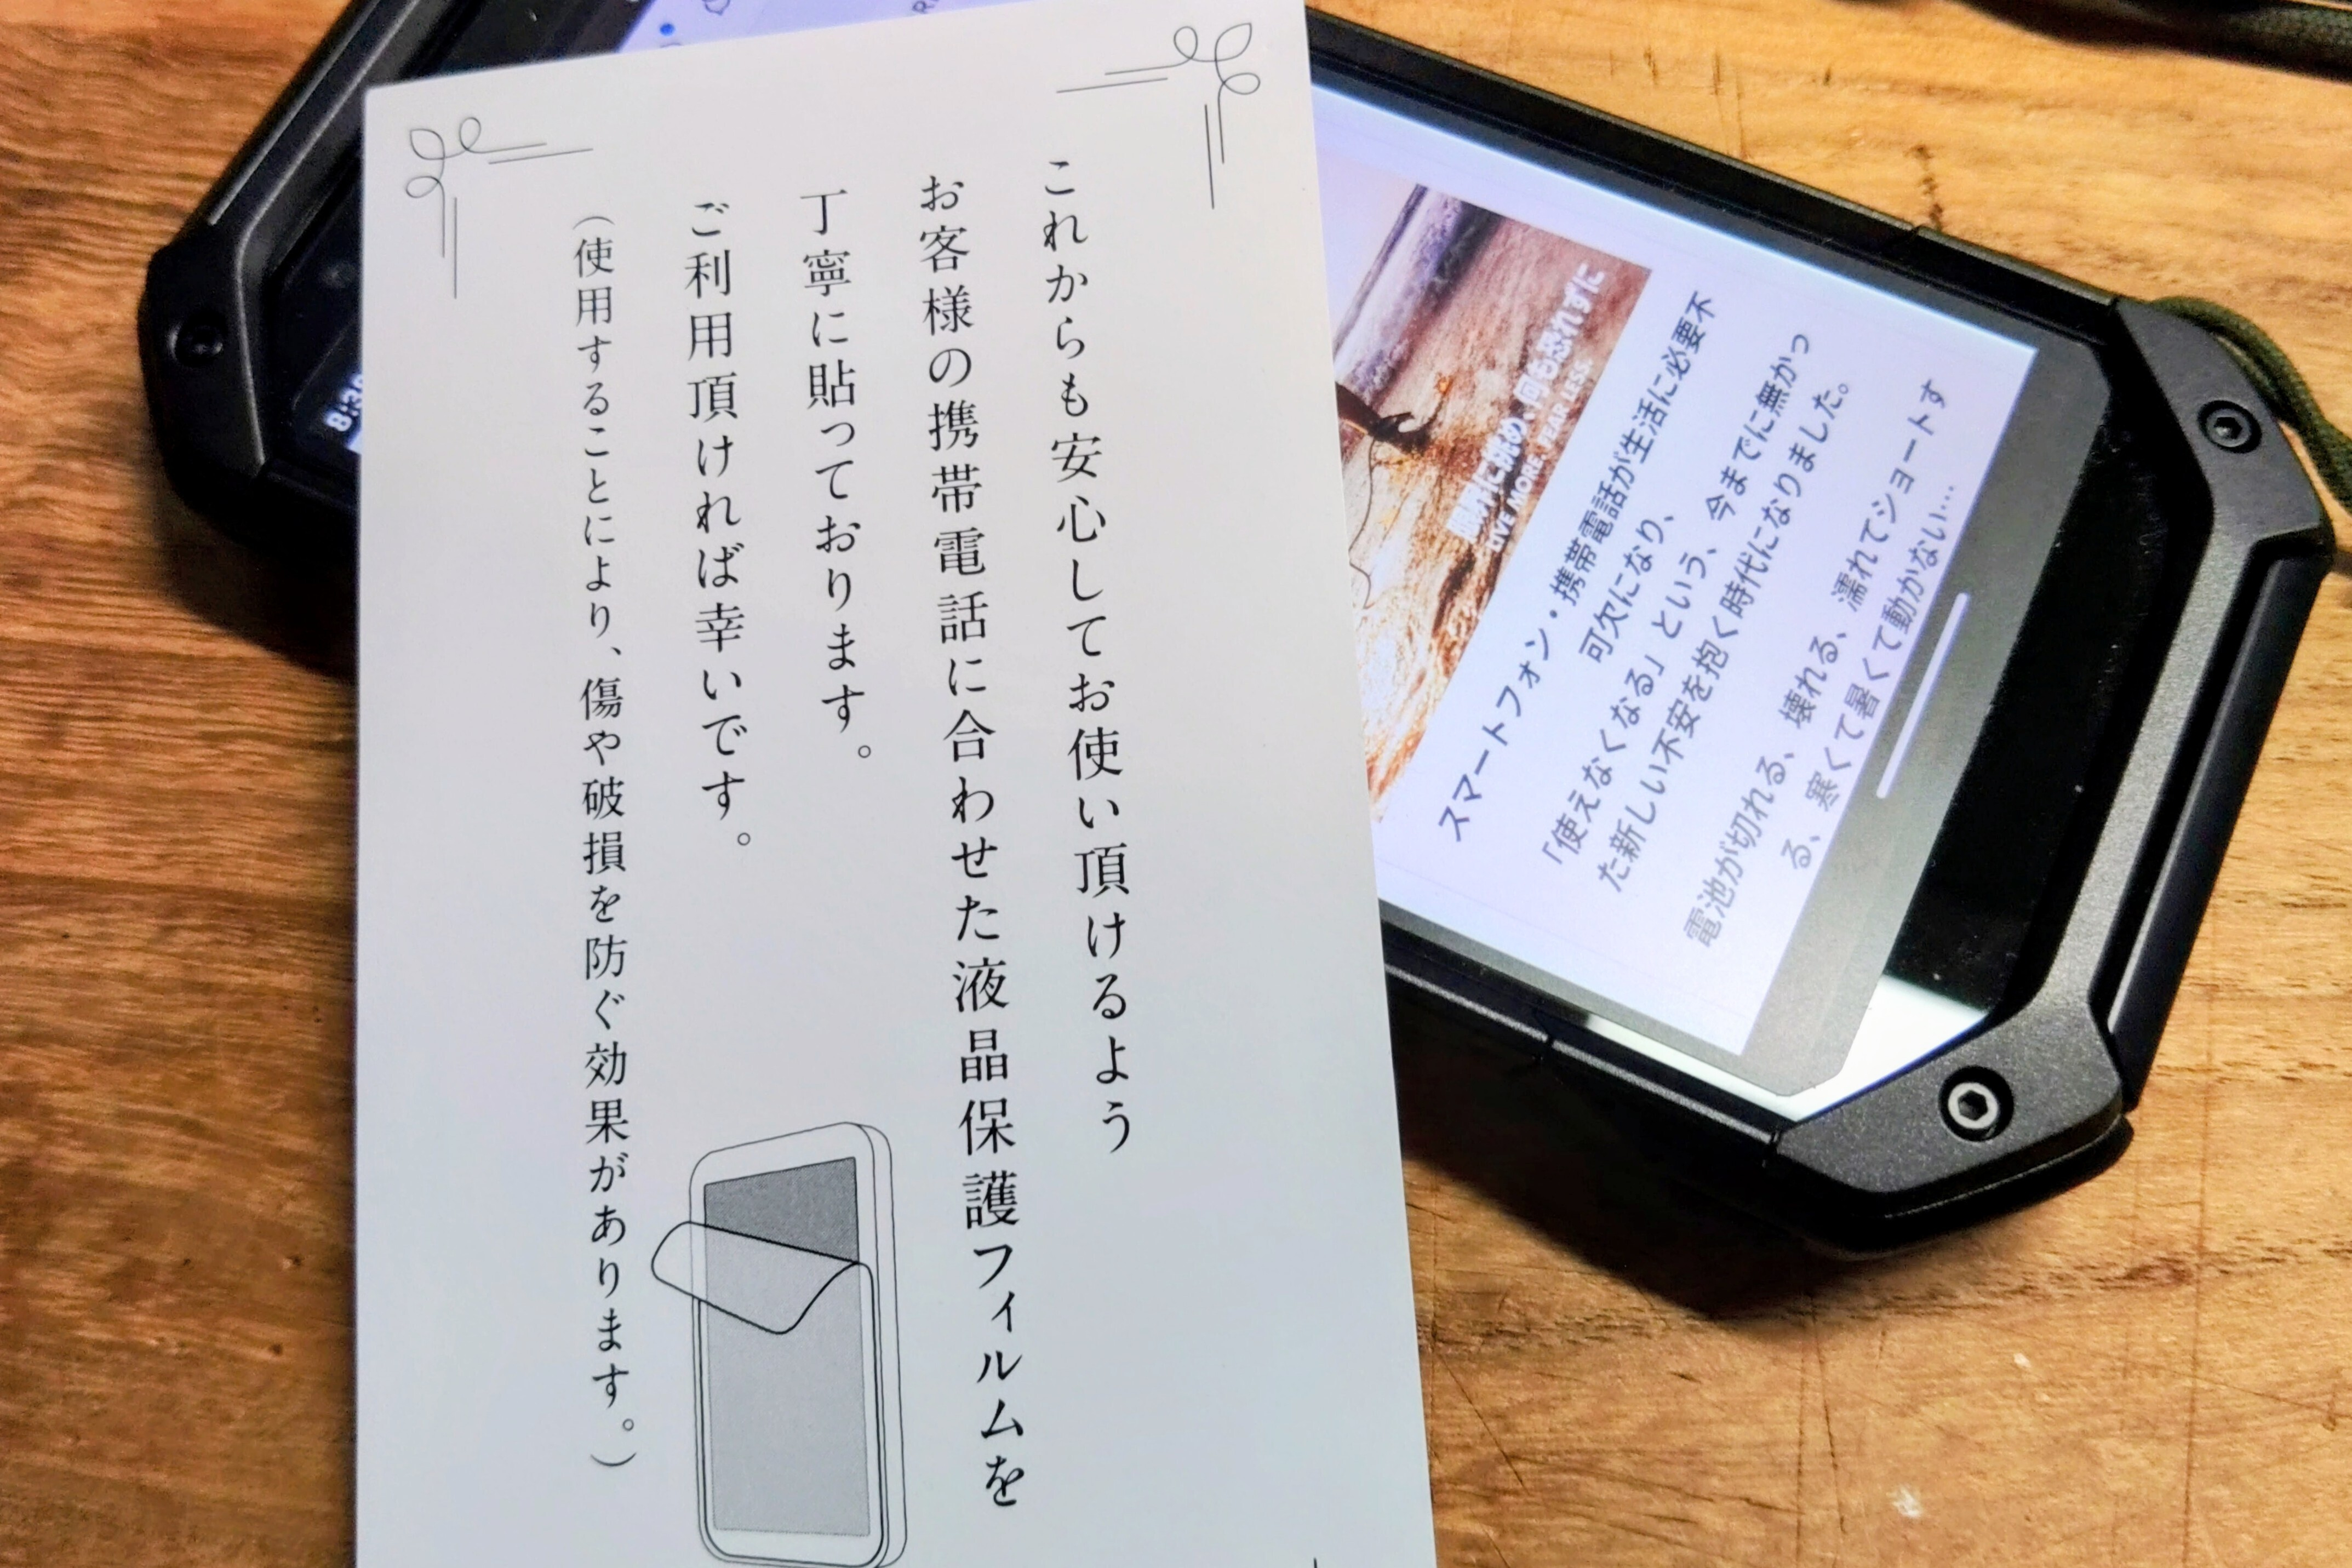 これからも安心してお使い頂けるよう
お客様の携帯電話に合わせた液晶保護フィルムを
丁寧に貼っております。
ご利用頂ければ幸いです。
（使用することにより、傷や破損を防ぐ効果があります。）
LIVE MORE, FEAR LESS
スマートフォン・携帯電話が生活に必要不
可欠になり、
「使えなくなる」という、今までに無かっ
た新しい不安を抱く時代になりました。
電池が切れる、壊れる、濡れてショートす
る、寒くて暑くて動かない…